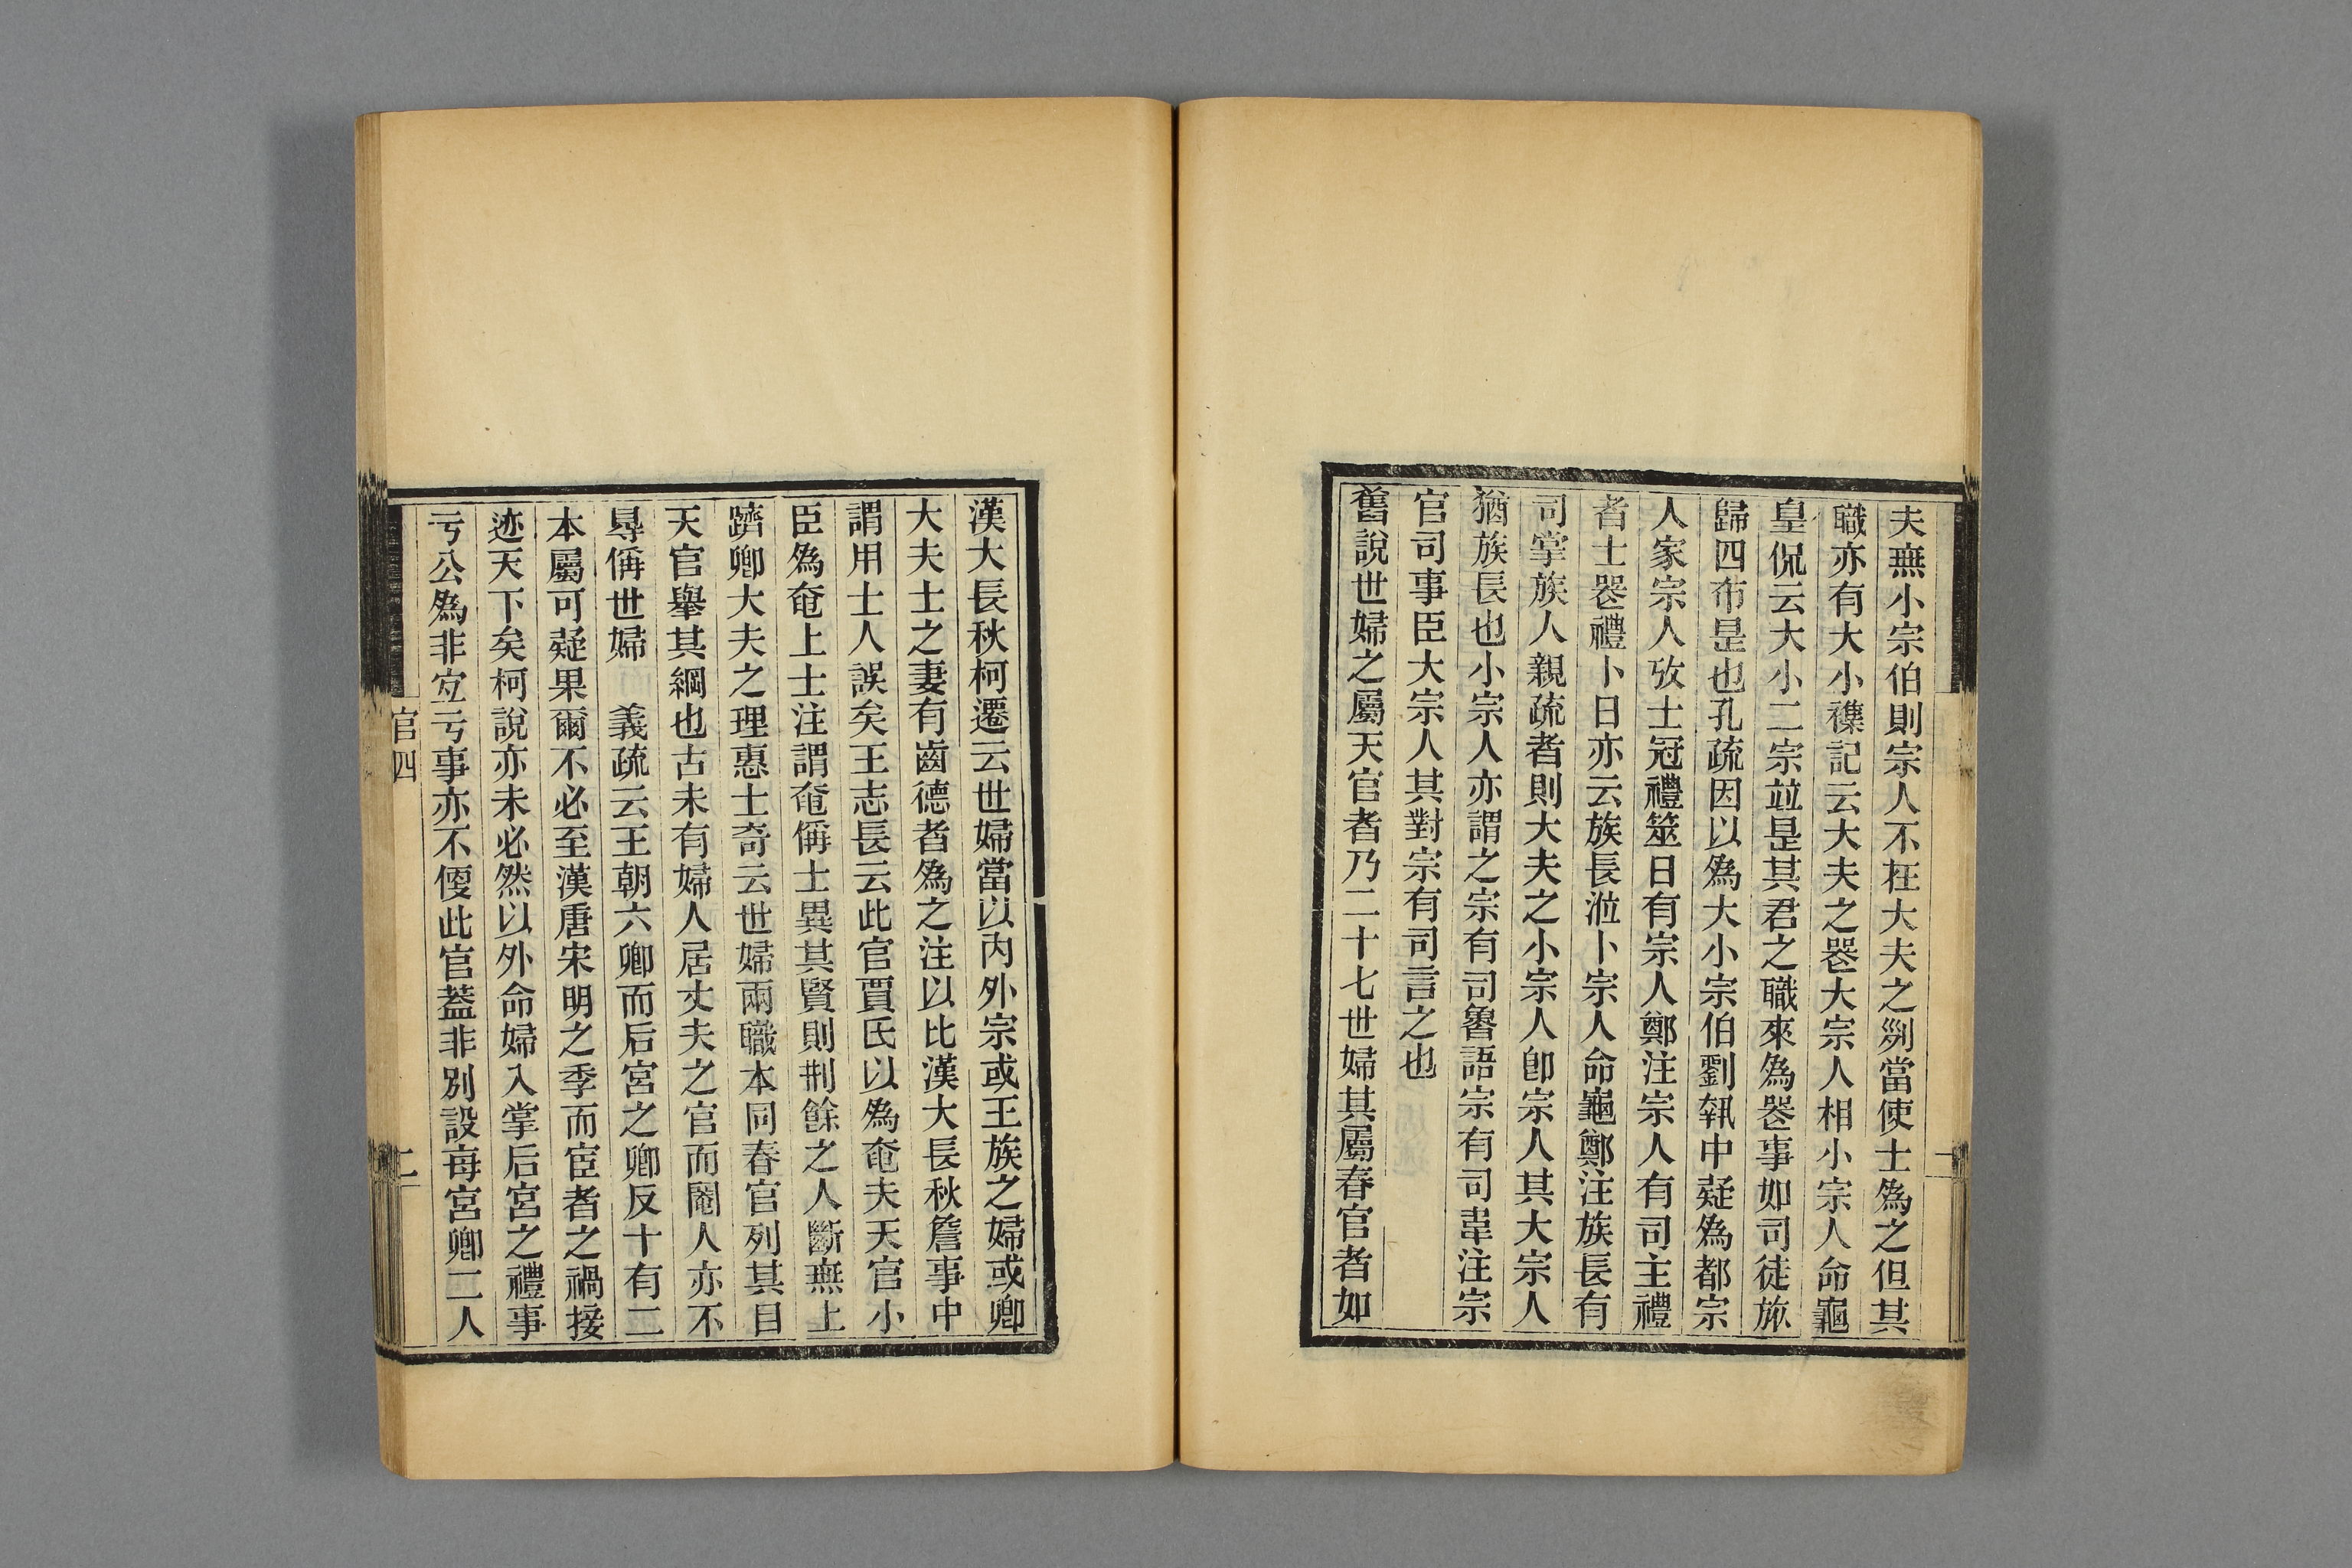 夫無小宗伯則宗人不在大夫之𠛱當使士為之但其
職亦有大小襍記云大夫之喪大宗人相小宗人命龜
皇侃云大小二宗竝是其君之職來為喪事如司徒旅
歸四布是也孔疏因以為大小宗伯劉執中疑為都宗
人家宗人攷士冠禮筮日有宗人鄭注宗人有司主禮
者士喪禮卜日亦云族長涖卜宗人命龜鄭注族長有
司掌族人親疏者則大夫之小宗人卽宗人其大宗人
猶族長也小宗人亦謂之宗有司魯語宗有司韋注宗
官司事臣大宗人其對宗有司言之也
舊說世婦之屬天官者乃二十七世婦其屬春官者如
漢大長秋柯遷云世婦當以內外宗或王族之婦或卿
大夫士之妻有齒德者為之注以比漢大長秋詹事中
謂用士人誤矣王志長云此官賈氏以為奄夫天官小
臣為奄上士注謂奄偁士異其賢則刑餘之人斷無上
躋卿大夫之理惠士奇云世婦兩職本同春官列其目
天官舉其綱也古未有婦人居丈夫之官而閹人亦不
㝵偁世婦　義疏云王朝六卿而后宮之卿反十有二
本屬可疑果爾不必至漢唐宋明之季而宦者之禍接
迹天下矣柯說亦未必然以外命婦入掌后宮之禮事
亏公為非宐亏事亦不便此官蓋非別設每宮卿二人
官四
二